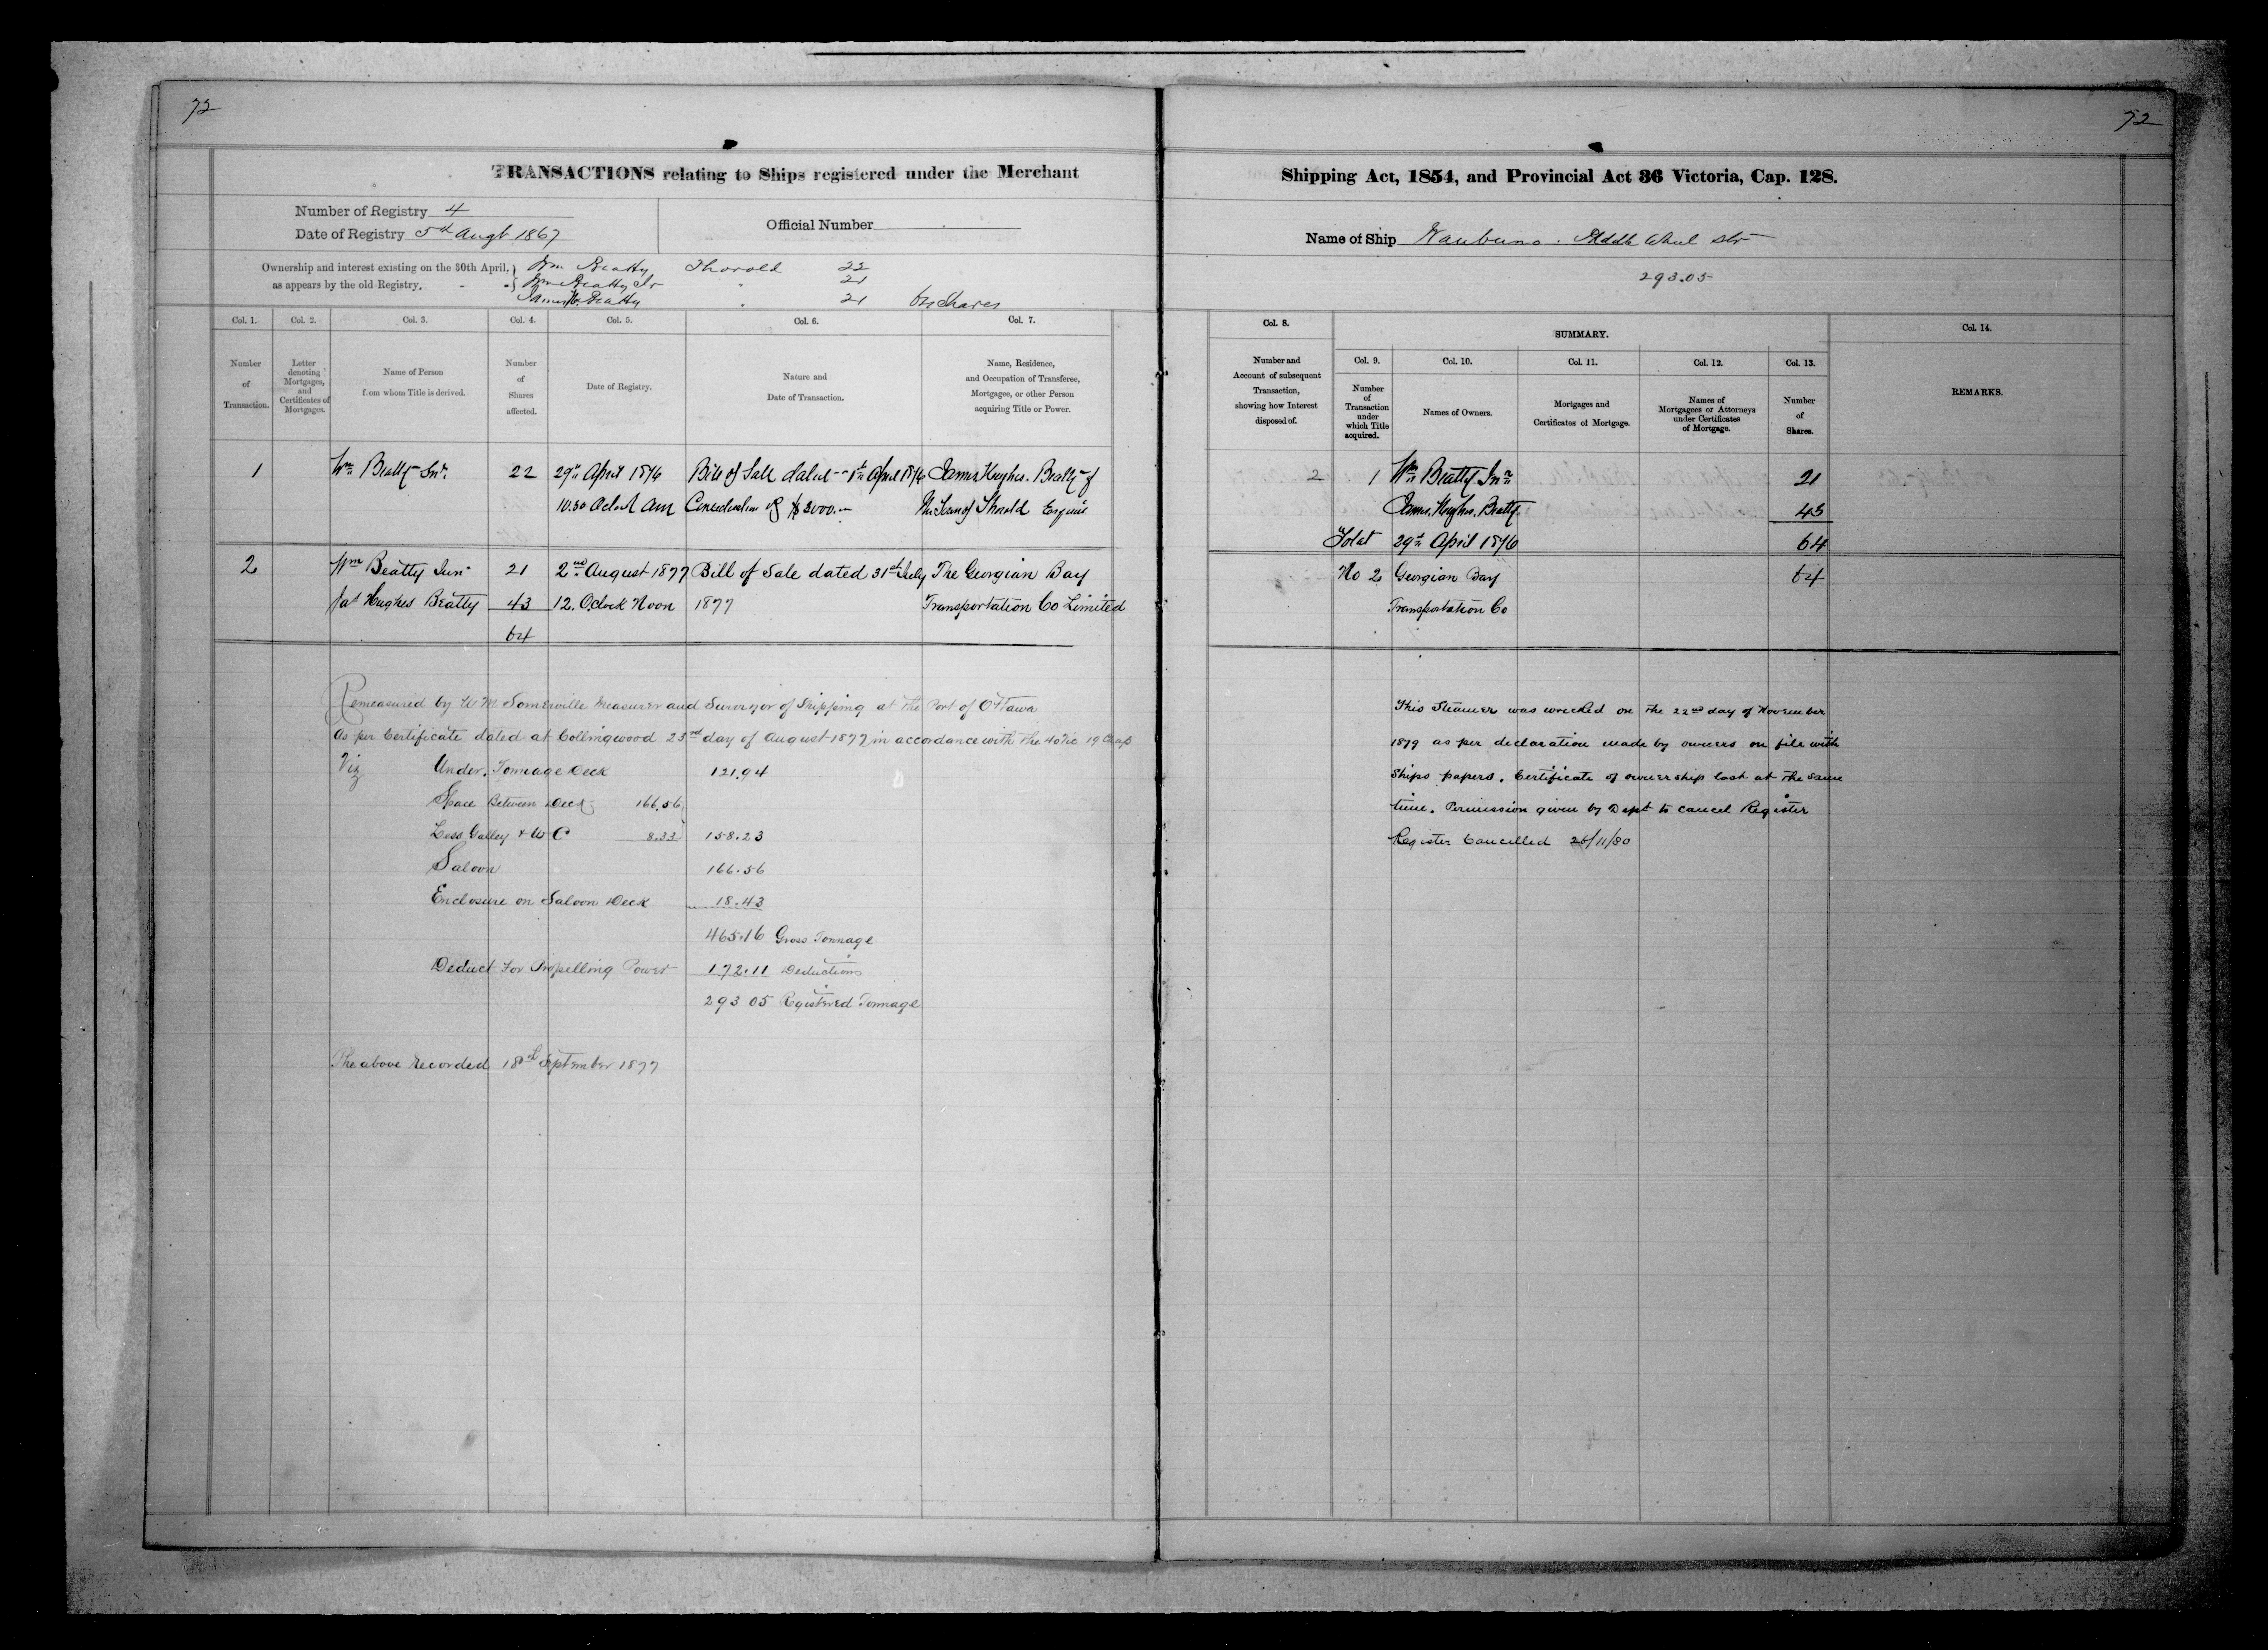 72
72
TRANSACTIONS relating to Ships registered under the Merchant Shipping Act, 1854, and Provincial Act 36 Victoria, Cap. 128.
Number of Registry 4
Date of Registry 5th Augt 1867
Official Number
Name of Ship Waubuno. Paddle Wheel Str
293.05
Ownership and interest existing on the 30th April, as appears by the old Registry.
Wm Beatty Thorold 22
Wm Beatty Jr " 21
James H. Beatty " 21 64 Shares
Col. 1. Col. 2. Col. 3. Col. 4. Col. 5. Col. 6. Col. 7.
Number of Transaction.
Letter denoting Mortgages, and Certificates of Mortgages.
Name of Person from whom Title is derived.
Number of Shares affected.
Date of Registry.
Nature and Date of Transaction.
Name, Residence, and Occupation of Transferee, Mortgagee, or other Person acquiring Title or Power.
1 Wm Beatty Snr. 22 29th April 1876 Bill of Sale dated 1st April 1876 James Hughes Beatty of
10.30 Oclock Am Consideration of $3000.- the Town of Thorold Esquire
2 Wm Beatty Jun 21 2nd August 1877 Bill of Sale dated 31st July The Georgian Bay
Jas Hughes Beatty 43 12. Oclock Noon 1877 Transportation Co Limited
64
Remeasured by W M Somerville Measurer and Surveyor of Shipping at the Port of Ottawa
As per Certificate dated at Collingwood 23rd day of August 1877 in accordance with the 40 Vic 19 Chap
Viz Under Tonnage Deck 121.94
Space Between Decks 166.56
Less Galley & W C 8.33 158.23
Saloon 166.56
Enclosure on Saloon Deck 18.43
465.16 Gross Tonnage
Deduct For Propelling Power 172.11 Deductions
293 05 Registered Tonnage
The above Recorded 18th September 1877
Col. 8.
SUMMARY.
Col. 14.
Col. 9. Col. 10. Col. 11. Col. 12. Col. 13.
Number and Account of subsequent Transaction, showing how Interest disposed of.
Number of Transaction under which Title acquired.
Names of Owners.
Mortgages and Certificates of Mortgage.
Names of Mortgagees or Attorneys under Certificates of Mortgage.
Number of Shares.
REMARKS.
2 1 Wm Beatty Jnr 21
James Hughes Beatty 43
Total 29th April 1876 64
No 2 Georgian Bay 64
Transportation Co
This Steamer was wrecked on the 22nd day of November
1879 as per declaration made by owners on file with
Ships papers. Certificate of ownership lost at the same
time. Permission given by Dept to cancel Register
Register Cancelled 26/11/80